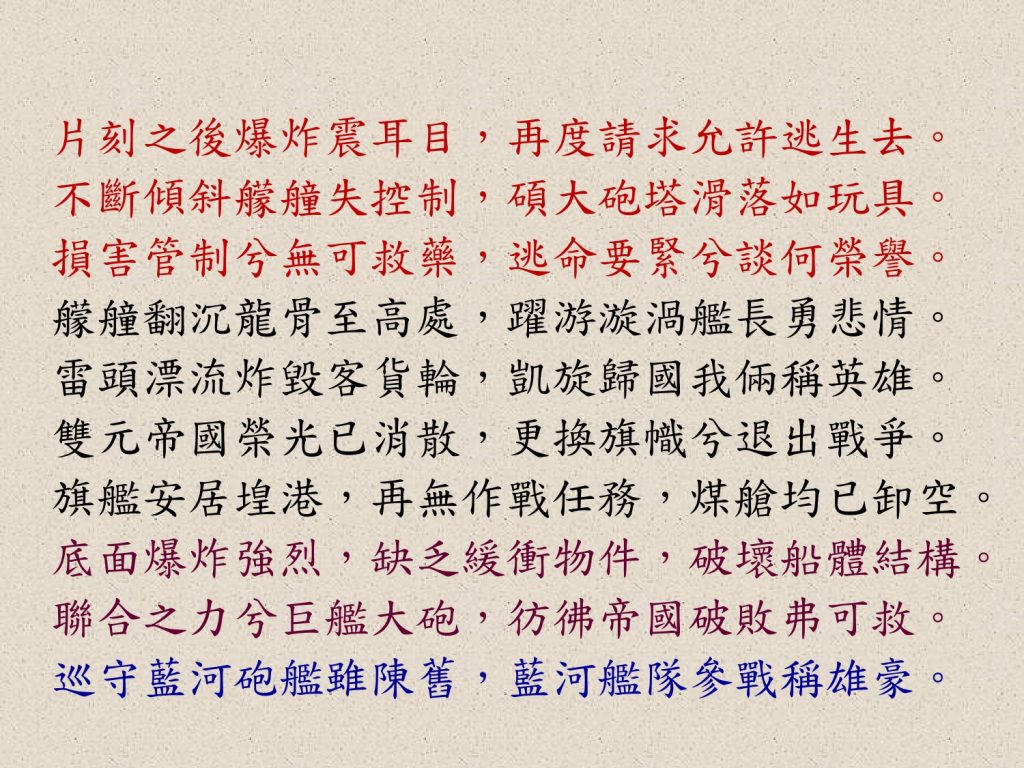 片刻之後爆炸震耳目，再度請求允許逃生去。
不斷傾斜艨艟失控制，碩大砲塔滑落如玩具。
損害管制兮無可救藥，逃命要緊兮談何榮譽。
艨艟翻沉龍骨至高處，躍游漩渦艦長勇悲情。
雷頭漂流炸毀客貨輪，凱旋歸國我倆稱英雄。
雙元帝國榮光已消散，更換旗幟兮退出戰爭。
旗艦安居堭港，再無作戰任務，煤艙均已卸空。
底面爆炸強烈，缺乏緩衝物件，破壞船體結構。
聯合之力兮巨艦大砲，彷彿帝國破敗弗可救。
巡守藍河砲艦雖陳舊，藍河艦隊參戰稱雄豪。